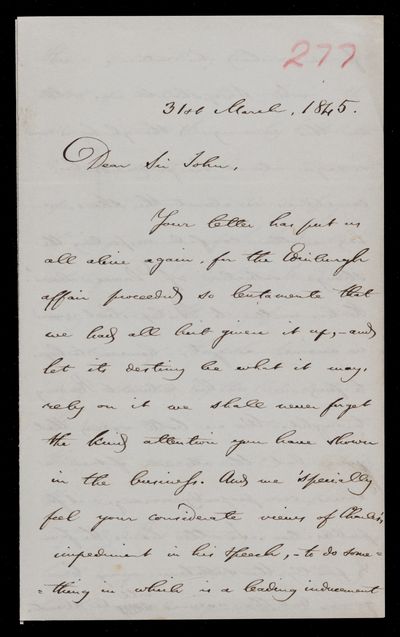 277
31st March, 1845.
Dear Sir John,
Your letter has put us
all alive again, for the Edinburgh
affair proceeded so lentamente that
we had all but given it up, - and
let its destiny be what it may,
rely on it we shall never forget
the kind attention you have shown
in the business. And we 'specially
feel your considerate views of Charles's
impediment in his speech, - to do some=
=thing in which is a leading inducement